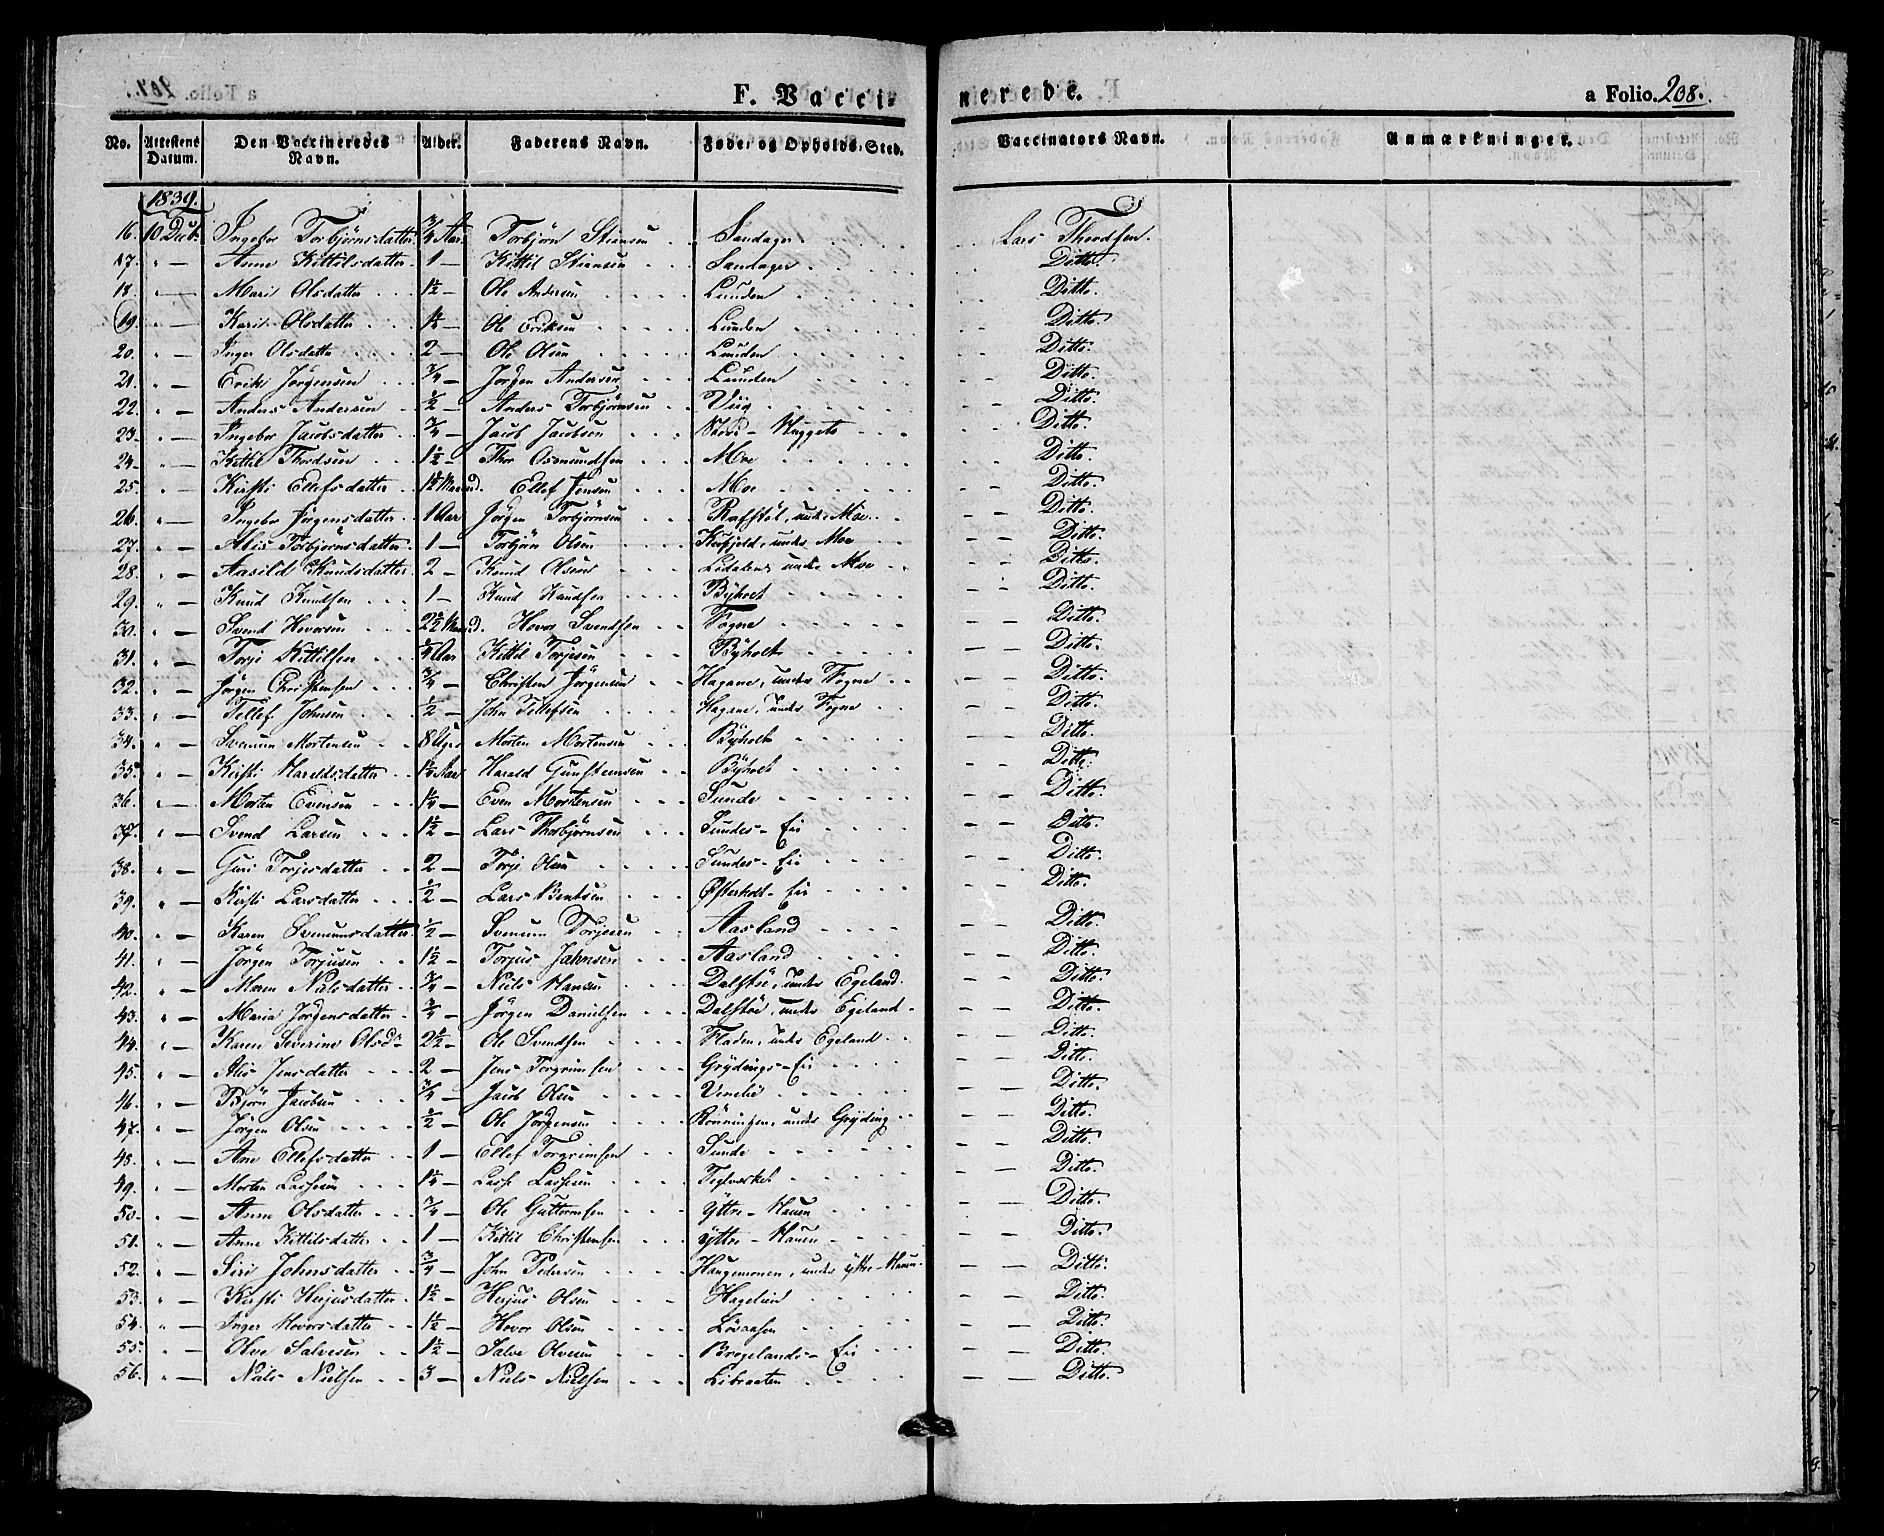 F. Vacci-
nerede.
a Folio. 208.
No. Attestens Datum. Den Vaccineredes Navn. Alder. Faderens Navn. Føde- og Opholds-Sted. Vaccinators Navn. Anmærkninger.
1839.
16. 10 Dec. Ingebor Torbjörnsdatter 3/4 Aar Torbjörn Stiansen Sandager Lars Thordsen.
17. " — Anne Kittilsdatter 1 — Kittil Stiansen Sandager Ditto.
18. " — Mari Olsdatter 1½ — Ole Andersen Lunden Ditto.
19. " — Kari Olsdatter Ole Eriksen Lunden Ditto.
20. " — Inger Olsdatter 2 — Ole Olsen Lunden Ditto.
21. " — Erik Jörgensen 3/4 — Jörgen Andersen Lunden Ditto.
22. " — Anders Andersen ½ — Anders Torbjörnsen Viig Ditto.
23. " — Ingebor Jacobsdatter 3/4 — Jacob Jacobsen Ditto.
24. " — Kittil Thordsen 1½ — Thor Osmundsen Moe Ditto.
25. " — Kirsti Ellefsdatter Ellef Jensen Moe Ditto.
26. " — Ingebor Jörgensdatter 1 Aar Jörgen Torbjörnsen Rafstöl, under Moe Ditto.
27. " — Alis Torbjörnsdatter 1 — Torbjörn Olsen under Moe Ditto.
28. " — Aasild Knudsdatter 2 — Knud Olsen under Moe Ditto.
29. " — Knud Knudsen 1 — Knud Knudsen Byholt Ditto.
30. " — Svend Hovorsen 2½ Maaned. Hovor Svendsen Fogne Ditto.
31. " — Torje Kittilsen Aar Kittil Torjesen Byholt Ditto.
32. " — Jörgen Christensen 3/4 — Christen Jörgensen Hagane, under Fogne Ditto.
33. " — Tellef Johnsen ½ — John Tellefsen Hagane, under Fogne Ditto.
34. " — Svenum Mortensen 8 Uger Morten Mortensen Byholt Ditto.
35. " — Kirsti Haraldsdatter Aar Harald Gunstensen Byholt Ditto.
36. " — Morten Evensen 1¼ — Even Mortensen Sunde Ditto.
37. " — Svend Larsen 1½ — Lars Thorbjörnsen Sundes-Eie Ditto.
38. " — Guri Torjesdatter 2 — Torje Olsen Sundes-Eie Ditto.
39. " — Kirsti Larsdatter ½ Lars Bentsen Østerholt-Eie Ditto.
40. " — Karen Svenumsdatter ½ — Svenum Torjesen Aasland Ditto.
41. " — Jörgen Torjusen 1½ — Torjus Jahnsen Aasland Ditto.
42. " — Maren Nielsdatter 3/4 — Niels Hansen Dalstöe, under Egeland. Ditto.
43. " — Maria Jörgensdatter 3/4 — Jörgen Danielsen Dalstöe, under Egeland Ditto.
44. " — Karen Severine Olsdr 2½ — Ole Svendsen Fladen, under Egeland Ditto.
45. " — Alis Jensdatter 2 — Jens Torgrimsen Grydings-Eie Ditto.
46. " — Björn Jacobsen 3/4 — Jacob Olsen Vinelie Ditto.
47. " — Jörgen Olsen ½ — Ole Jörgensen Rönningen, under Gryding Ditto.
48. " — Ane Ellefsdatter 1 — Ellef Torgrimsen Sunde Ditto.
49. " — Morten Lassesen 1¼ — Lasse Lassesen Teglverket Ditto.
50. " — Anne Olsdatter 3/4 — Ole Guttormsen Yttre-Hauen Ditto.
51. " — Anne Kittilsdatter 1 — Kittil Christensen Yttre-Hauen Ditto.
52. " — Siri Johnsdatter 3/4 — John Pedersen Haugemoen, under Yttre-Hauen Ditto.
53. " — Kirsti Herjusdatter 1½ — Herjus Olsen Hagelien Ditto.
54. " — Inger Hovorsdatter 1½ — Hovor Olsen Lövaasen Ditto.
55. " — Olve Salvesen 1½ — Salve Olvesen Brogelands-Eie Ditto.
56. " — Niels Nielsen 3 — Niels Nielsen Libraaten Ditto.